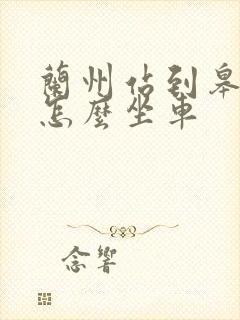 蘭州佔到皋
怎麼坐車
念響